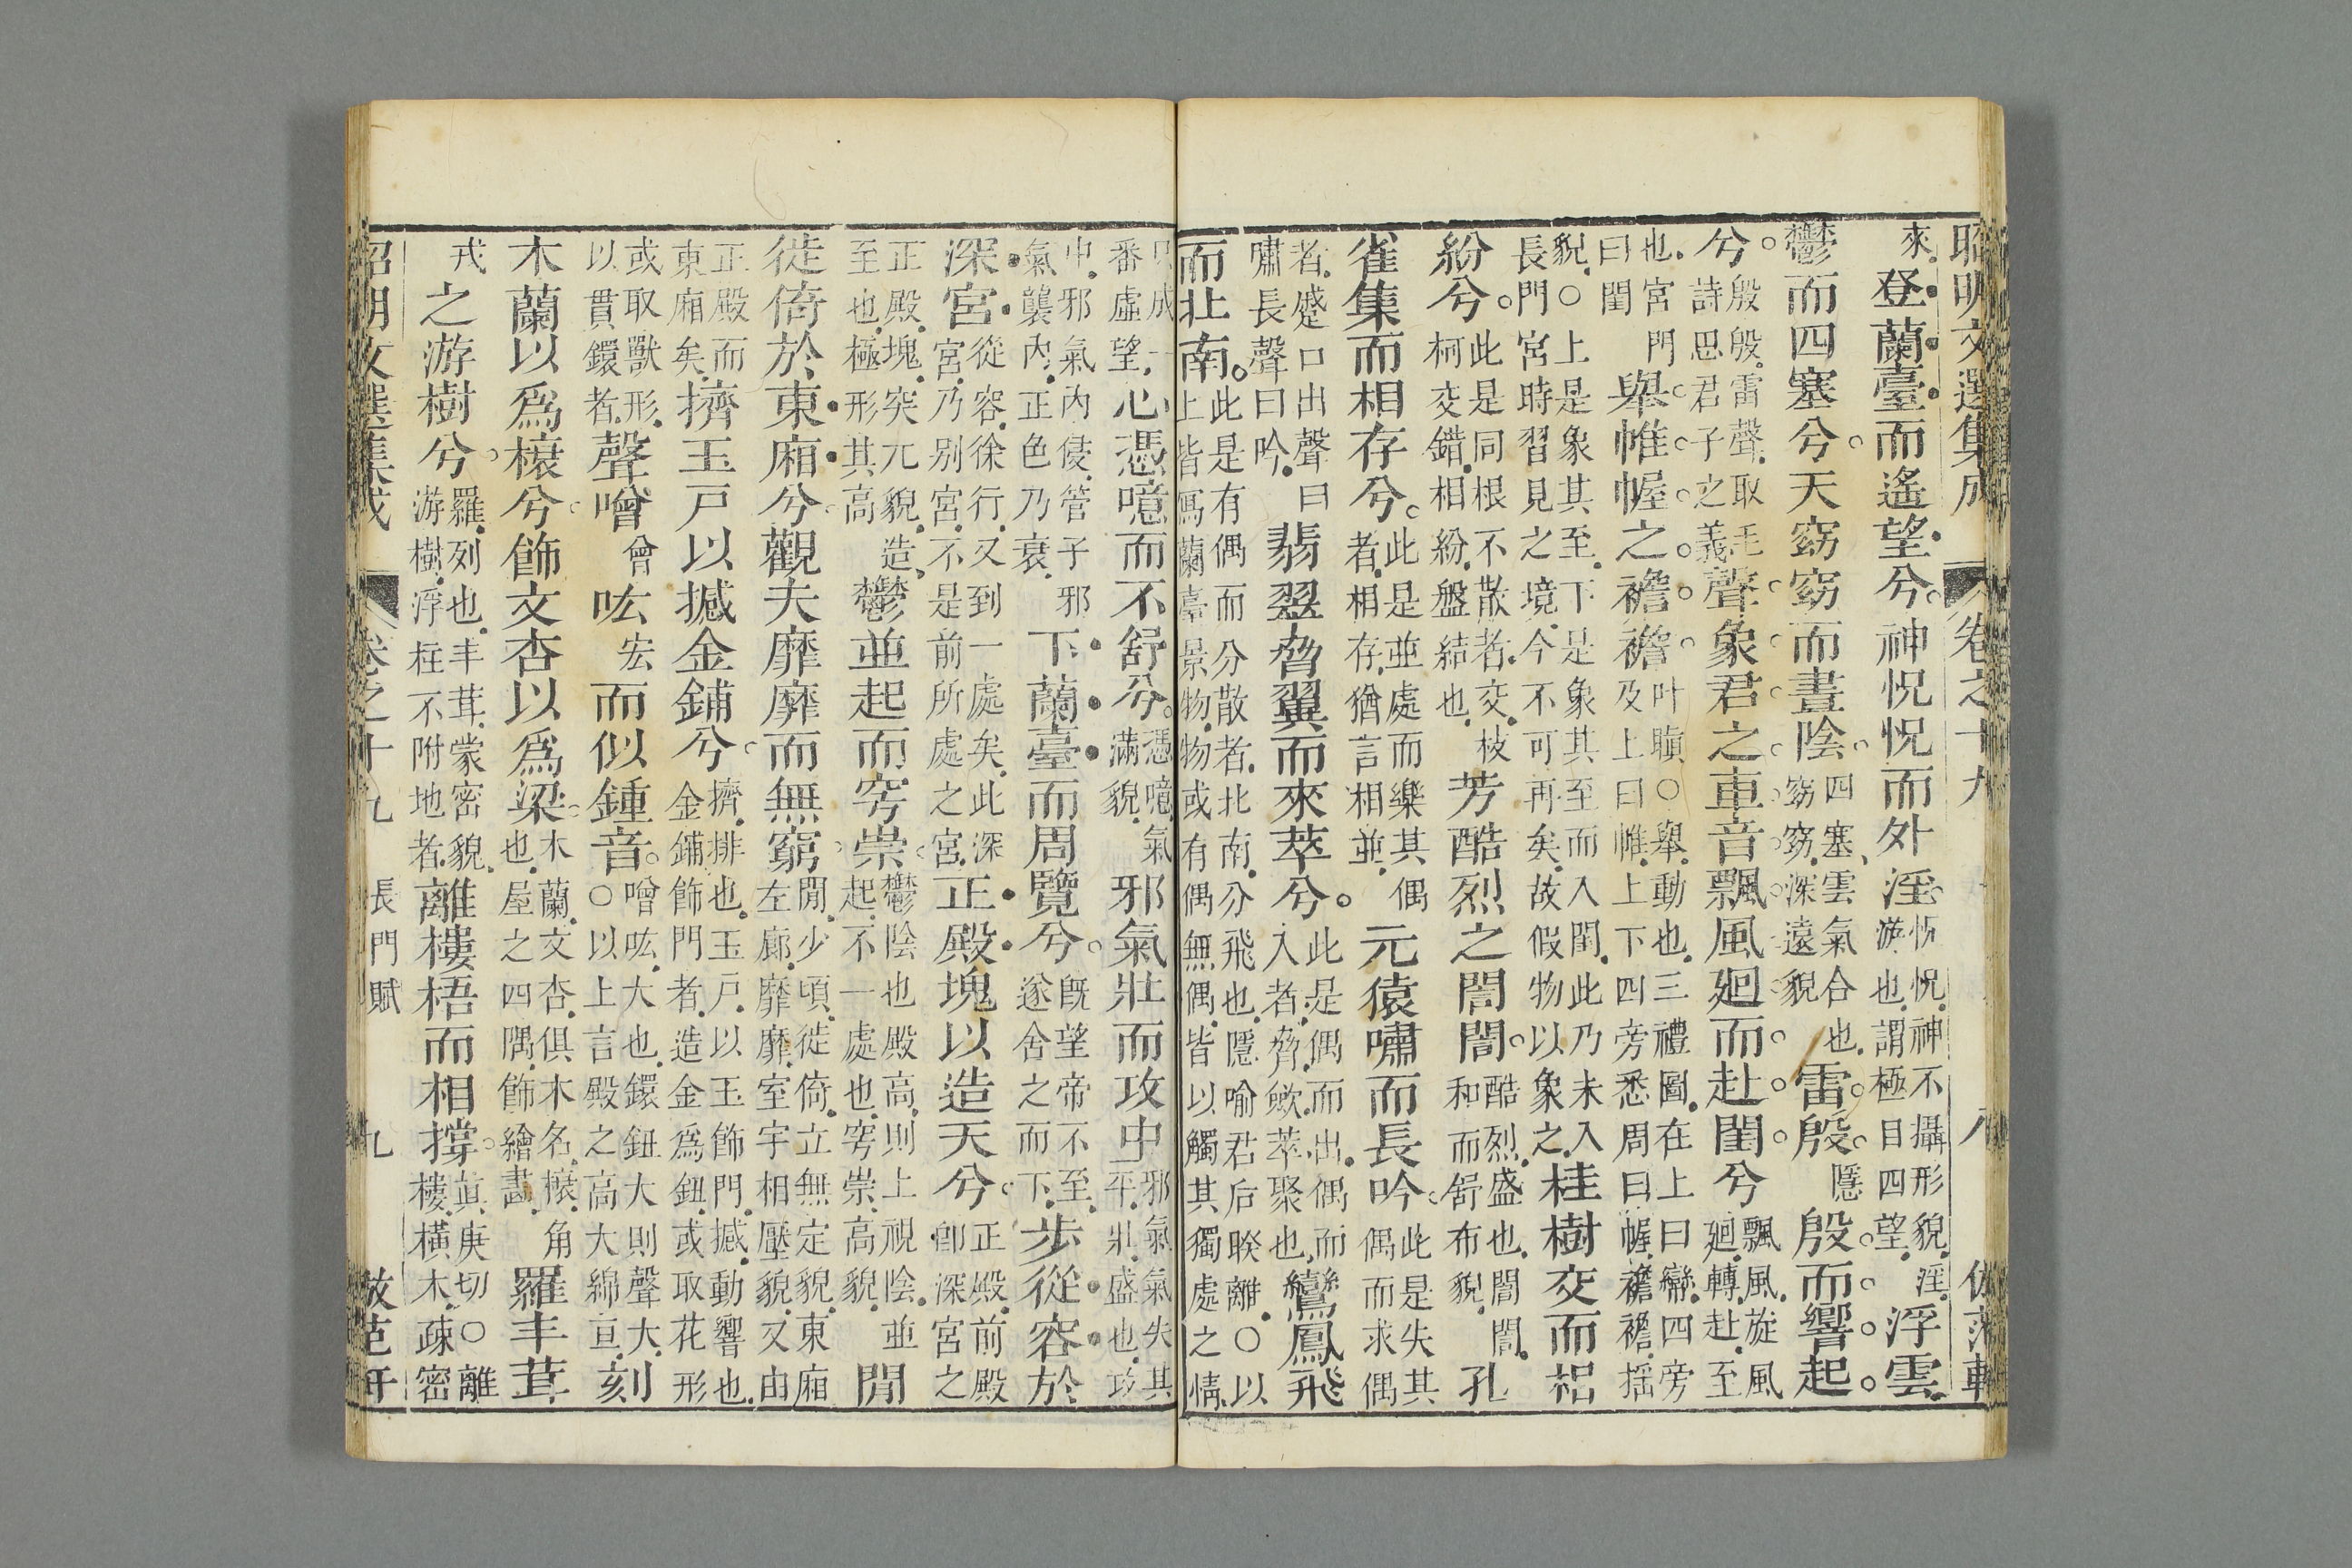 昭明文選集成 卷之十九 八 倣范軒
來登蘭臺而遙望兮神怳怳而外淫怳怳神不攝形貌淫游也謂極目四望浮雲
鬱而四塞兮天窈窈而晝陰四塞雲氣合也窈窈深遠貌雷殷隱殷而響起
兮殷殷雷聲取毛詩思君子之義聲象君之車音飄風廻而赴閨兮飄風旋風廻轉赴至
也宮門曰閨舉帷幄之襜襜叶瞋〇舉動也三禮圖在上曰四旁及上曰帷上下四旁悉周曰幄襜襜揺
貌〇上是象其至下是象其至而入閨此乃未入長門宮時習見之境今不可再矣故假物以象之桂樹交而相
紛兮此是同根不散者交枝柯交錯相紛盤結也芳酷烈之誾誾酷烈盛也誾誾和而舒布貌孔
雀集而相存兮此是並處而樂其偶者相存猶言相並元猿嘯而長吟此是失其偶而求偶
者蹙口出聲曰嘯長聲曰吟翡翠脅翼而來萃兮此是偶而出偶而入者脅歛萃聚也鸞鳳飛
而北南此是有偶而分散者北南分飛也隱喻君后睽離〇以上皆寫蘭臺景物物或有偶無偶皆以觸其獨處之情
只成一番虛望心憑噫而不舒兮憑噫氣滿貌邪氣壯而攻中邪氣氣失其平壯盛也攻
中邪氣內侵管子邪氣襲內正色乃衰下蘭臺而周覽兮旣望帝不至遂舍之而下步從容於
深宮從容徐行又到一處矣此深宮乃别宮不是前所處之宮正殿塊以造天兮正殿前殿卽深宮之
正殿塊突兀貌造至也極形其高鬱並起而穹崇鬱陰也殿高則上視陰並起不一處也穹崇高貌閒
徙倚於東廂兮觀夫靡靡而無窮閒少頃徙倚立無定貌東廂左廊靡靡室宇相壓貌又由
正殿而東廂矣擠玉戸以撼金鋪兮擠排也玉戸以玉飾門撼動響也金鋪飾門者造金爲鈕或取花形
或取獸形以貫鐶者聲噌曾吰宏而似鍾音噌吰大也鐶鈕大則聲大〇以上言殿之高大綿亘刻
木蘭以爲榱兮飾文杏以爲梁木蘭文杏俱木名榱角也屋之四隅飾繪畵羅丰茸
戎之游樹兮羅列也丰茸蒙密貌游樹浮柱不附地者離樓梧而相撐眞庚切〇離樓橫木疎密
昭明文選集成 卷之十九 長門賦 九 倣范軒